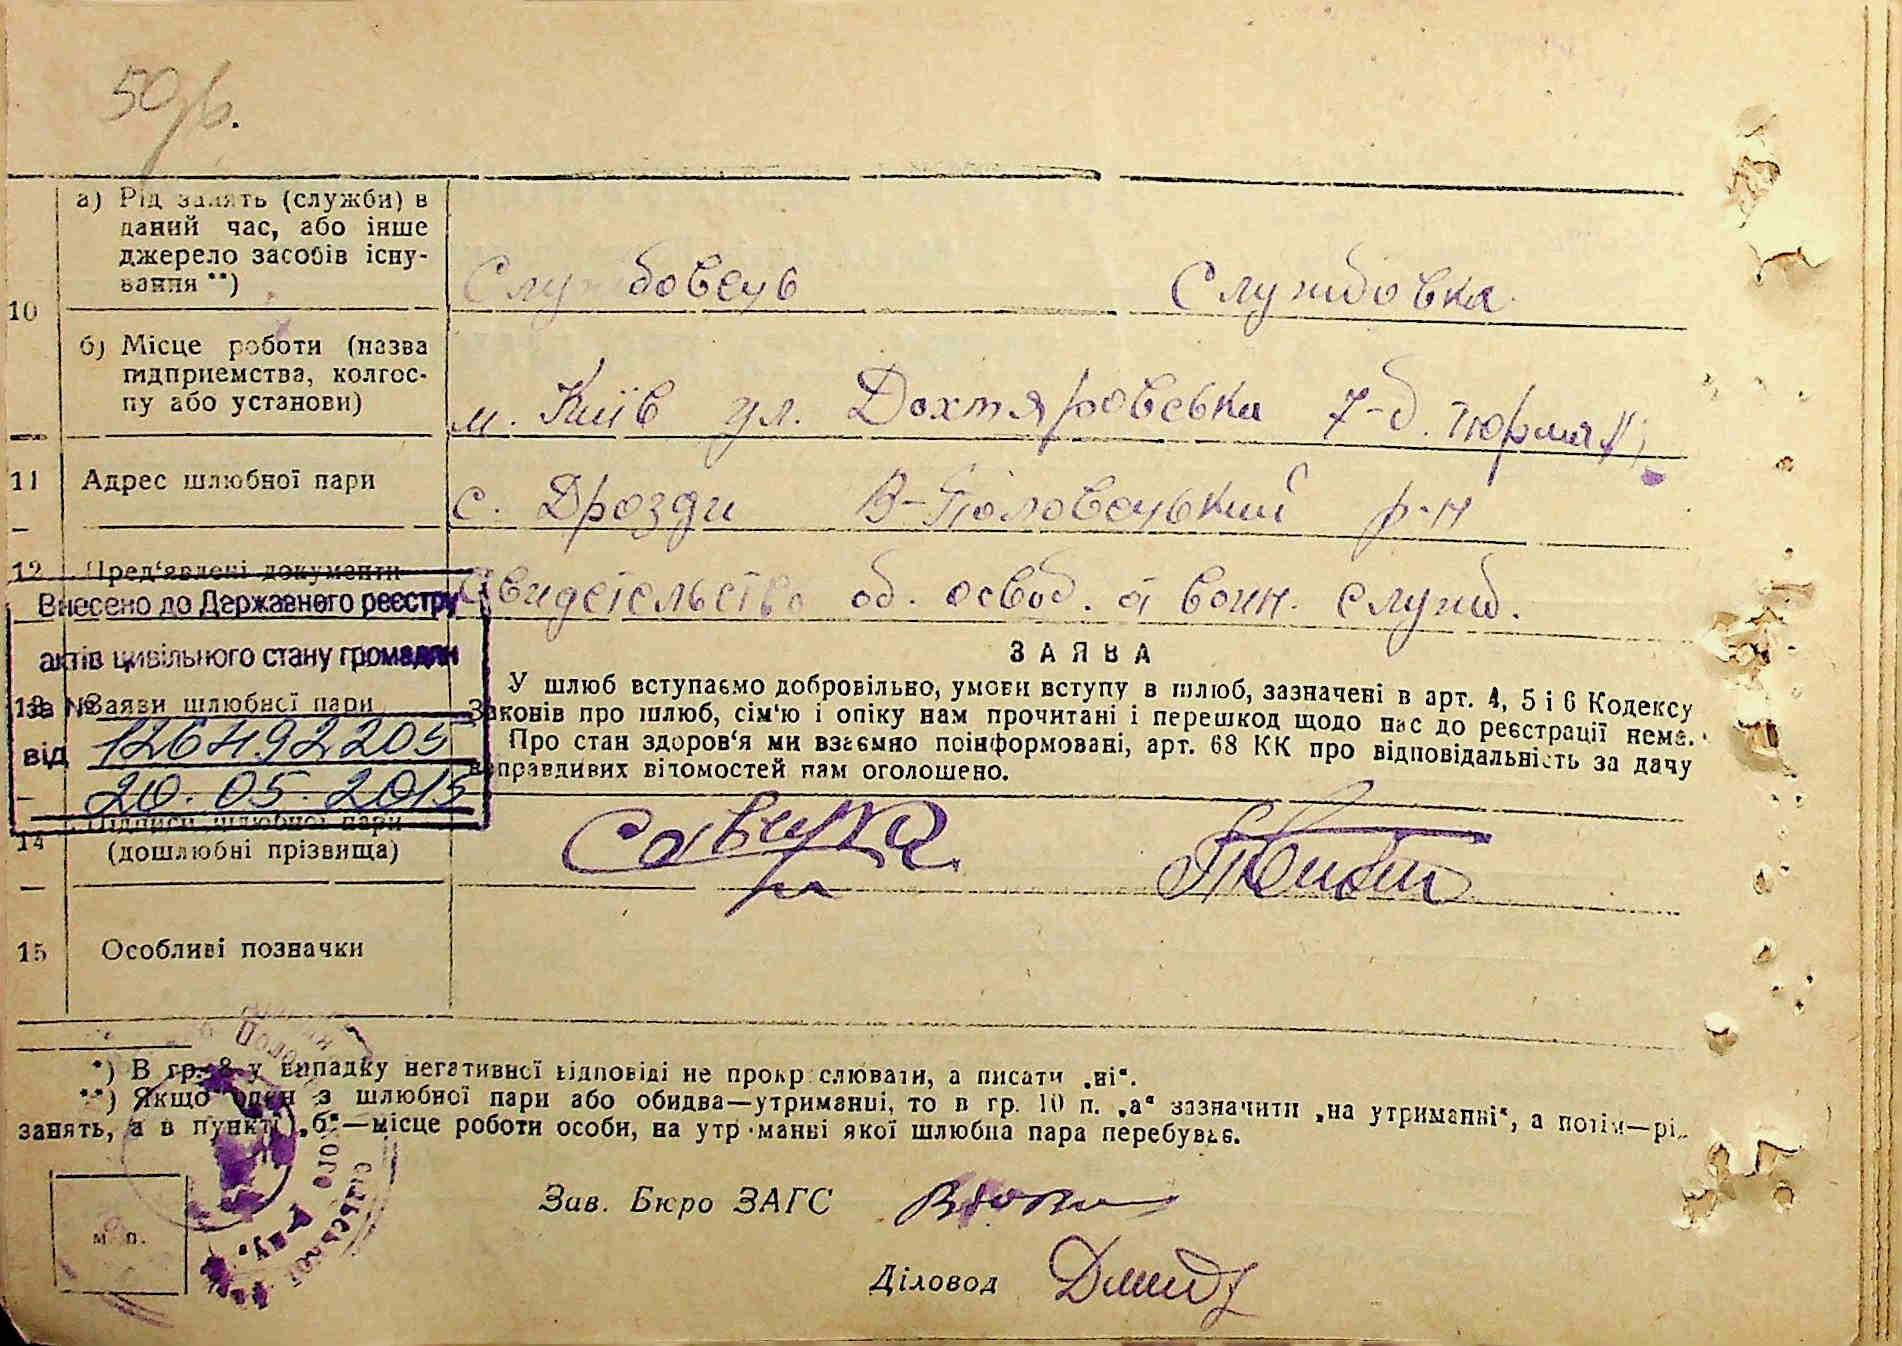 50
а) Рід занять (служби) в
даний час, або інше
джерело засобів існу-
вання **)
Службовець Службовка
10
б) Місце роботи (назва
підприємства, колгос-
пу або установи)
м. Київ ул. Дохтяровська 7-б. тюрма
11 Адрес шлюбної пари
с. Дрозди В-Половецький р-н
12 Пред'явлені документи
Свидетельство об. освоб. от воин. служб.
Внесено до Державного реєстру
актів цивільного стану громадян
за №
126492205
від
20.05.2015
13 Заяви шлюбної пари
ЗАЯВА
У шлюб вступаємо добровільно, умови вступу в шлюб, зазначені в арт. 4, 5 і 6 Кодексу
Законів про шлюб, сім'ю і опіку нам прочитані і перешкод щодо нас до реєстрації нема.
Про стан здоров'я ми взаємно поінформовані, арт. 68 КК про відповідальність за дачу
неправдивих відомостей нам оголошено.
14 Підписи шлюбної пари
(дошлюбні прізвища)
15 Особливі позначки
*) В гр. 8 у випадку негативної відповіді не прокреслювати, а писати „ні“.
**) Якщо один з шлюбної пари або обидва—утриманці, то в гр. 10 п. „а“ зазначити „на утриманні“, а потім—рі
занять, а в пункті „б“—місце роботи особи, на утриманні якої шлюбна пара перебуває.
Зав. Бюро ЗАГС
м. п.
Діловод